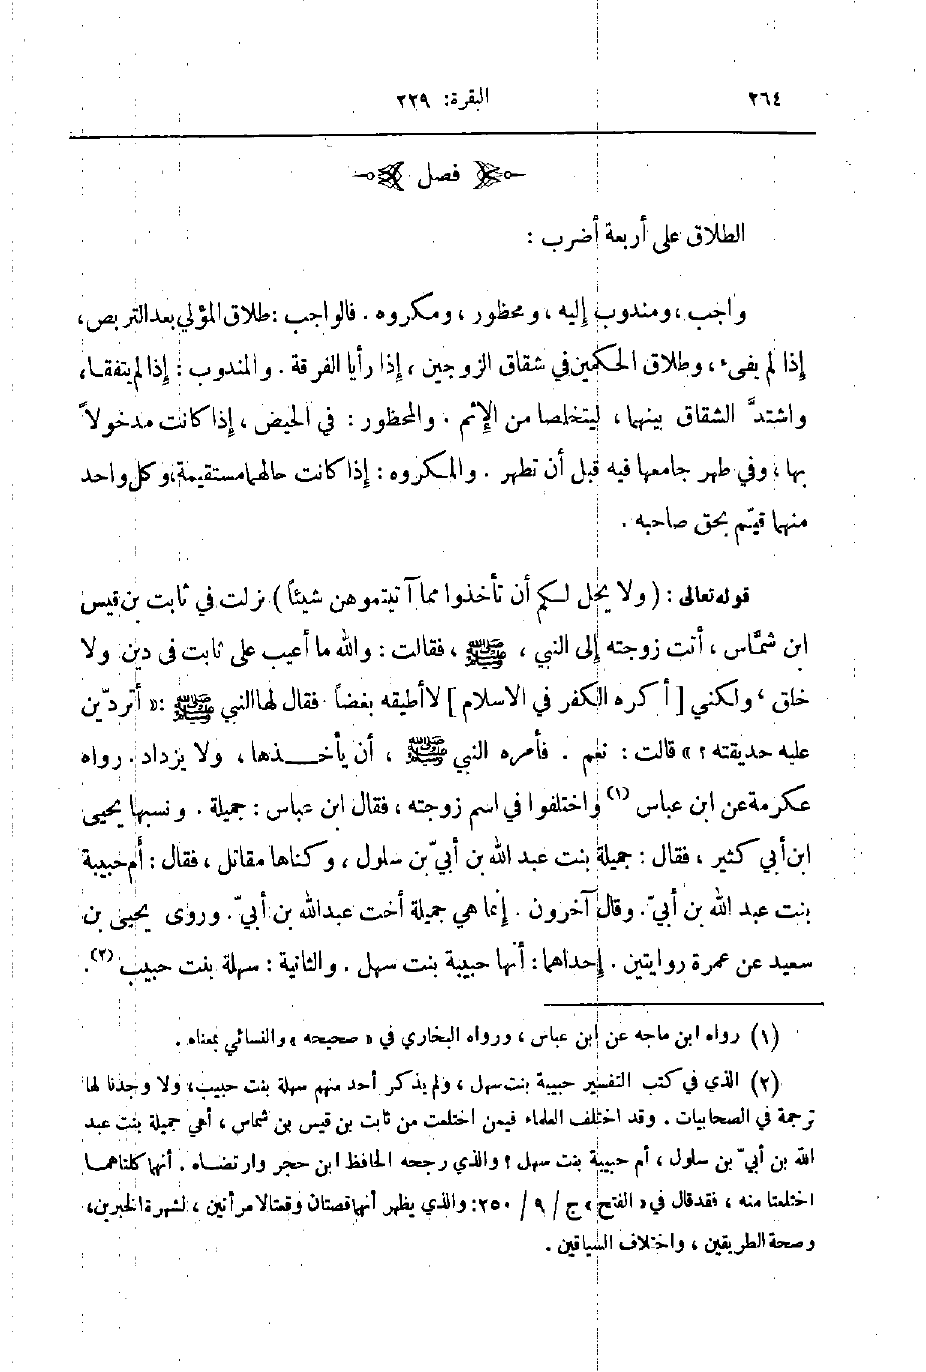 ٢٦٤ البقرة: ٢٢٩
فصل
الطلاق على أربعة أضرب :
واجب ، ومندوب إليه ، ومحظور ، ومكروه . فالواجب : طلاق المؤلي بعد التربص ،
إذا لم يفىء ، وطلاق الحكمين في شقاق الزوجين ، إذا رأيا الفرقة . والمندوب : إذا لم يتفقا ،
واشتدَّ الشقاق بينهما ، ليتخلصا من الإثم . والمحظور : في الحيض ، إذا كانت مدخولاً
بها ، وفي طهر جامعها فيه قبل أن تطهر . والمكروه : إذا كانت حالهما مستقيمة ، وكل واحد
منهما قيّم بحق صاحبه .
قوله تعالى : ( ولا يحل لكم أن تأخذوا مما آتيتموهن شيئاً ) نزلت في ثابت بن قيس
ابن شمَّاس ، أتت زوجته إلى النبي ، ﷺ ، فقالت : والله ما أعيب على ثابت في دين ولا
خلق ، ولكني [ أكره الكفر في الاسلام ] لا أطيقه بغضاً . فقال لها النبي ﷺ : « أتردّين
عليه حديقته ؟ » قالت : نعم . فأمره النبي ﷺ ، أن يأخــذها ، ولا يزداد . رواه
عكرمة عن ابن عباس (١) واختلفوا في اسم زوجته ، فقال ابن عباس : جميلة . ونسبها يحيى
ابن أبي كثير ، فقال : جميلة بنت عبد الله بن أبيّ بن سلول ، وكناها مقاتل ، فقال : أم حبيبة
بنت عبد الله بن أبيّ . وقال آخرون . إنما هي جميلة أخت عبد الله بن أبيّ . وروى يحيى بن
سعيد عن عمرة روايتين . إحداهما : أنها حبيبة بنت سهل . والثانية : سهلة بنت حبيب (٢) .
(١) رواه ابن ماجه عن ابن عباس ، ورواه البخاري في « صحيحه » والنسائي بمعناه .
(٢) الذي في كتب التفسير حبيبة بنت سهل ، ولم يذكر أحد منهم سهلة بنت حبيب ، ولا وجدنا لها
ترجمة في الصحابيات . وقد اختلف العلماء فيمن اختلعت من ثابت بن قيس بن شماس ، أهي جميلة بنت عبد
الله بن أبيّ بن سلول ، أم حبيبة بنت سهل ؟ والذي رجحه الحافظ ابن حجر وارتضاه . أنها كلتاهما
اختلعتا منه ، فقد قال في « الفتح » ج / ٩ / ٢٥٠ : والذي يظهر أنها قصتان وقعتا لامرأتين ، لشهرة الخبرين ،
وصحة الطريقين ، واختلاف السياقين .